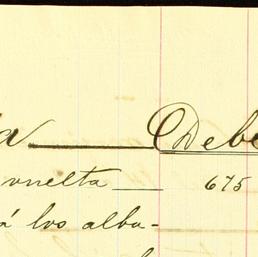 a Debe
vuelta 675
á los alba-